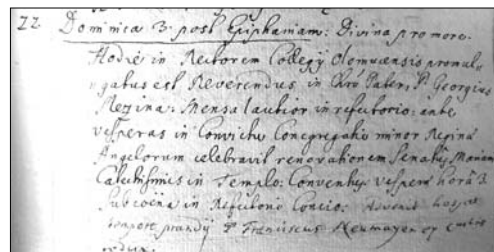 22 Dominica 3. post Epiphaniam: Divina pro more.
Hodie in Rectorem Collegÿ Olomucensis promul-
gatus est Reverendus in Chrô Pater, P. Georgius
Mensa lautior in refectorio: ante
vesperas in Convictu Congregatio minor Regina
Angelorum celebravit renovationem Senatûs Mariani
in Templo: Conventus vesperi horâ 3.
Sub coena in Refectorio Concio: Advenit
tempore prandÿ P. Franciscus Neumayer
redux.